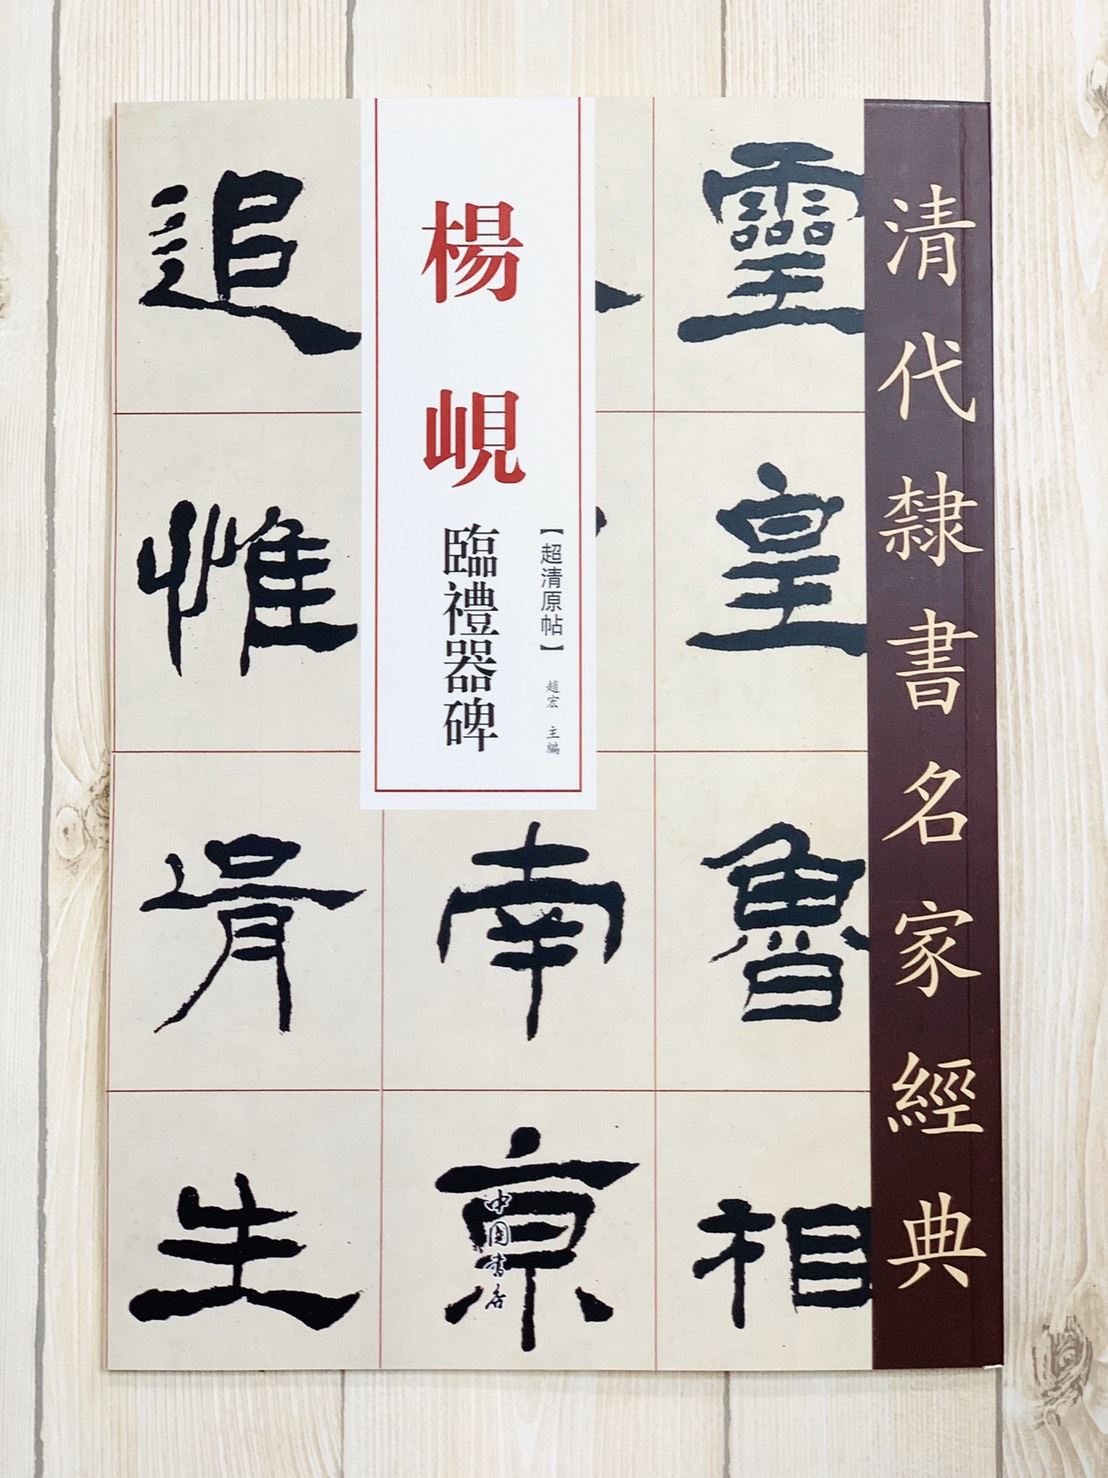 清代隸書名家經典
靈皇魯相
南京
追惟胥生
楊峴
臨禮器碑
【超清原帖】
趙宏 主編
中國書店